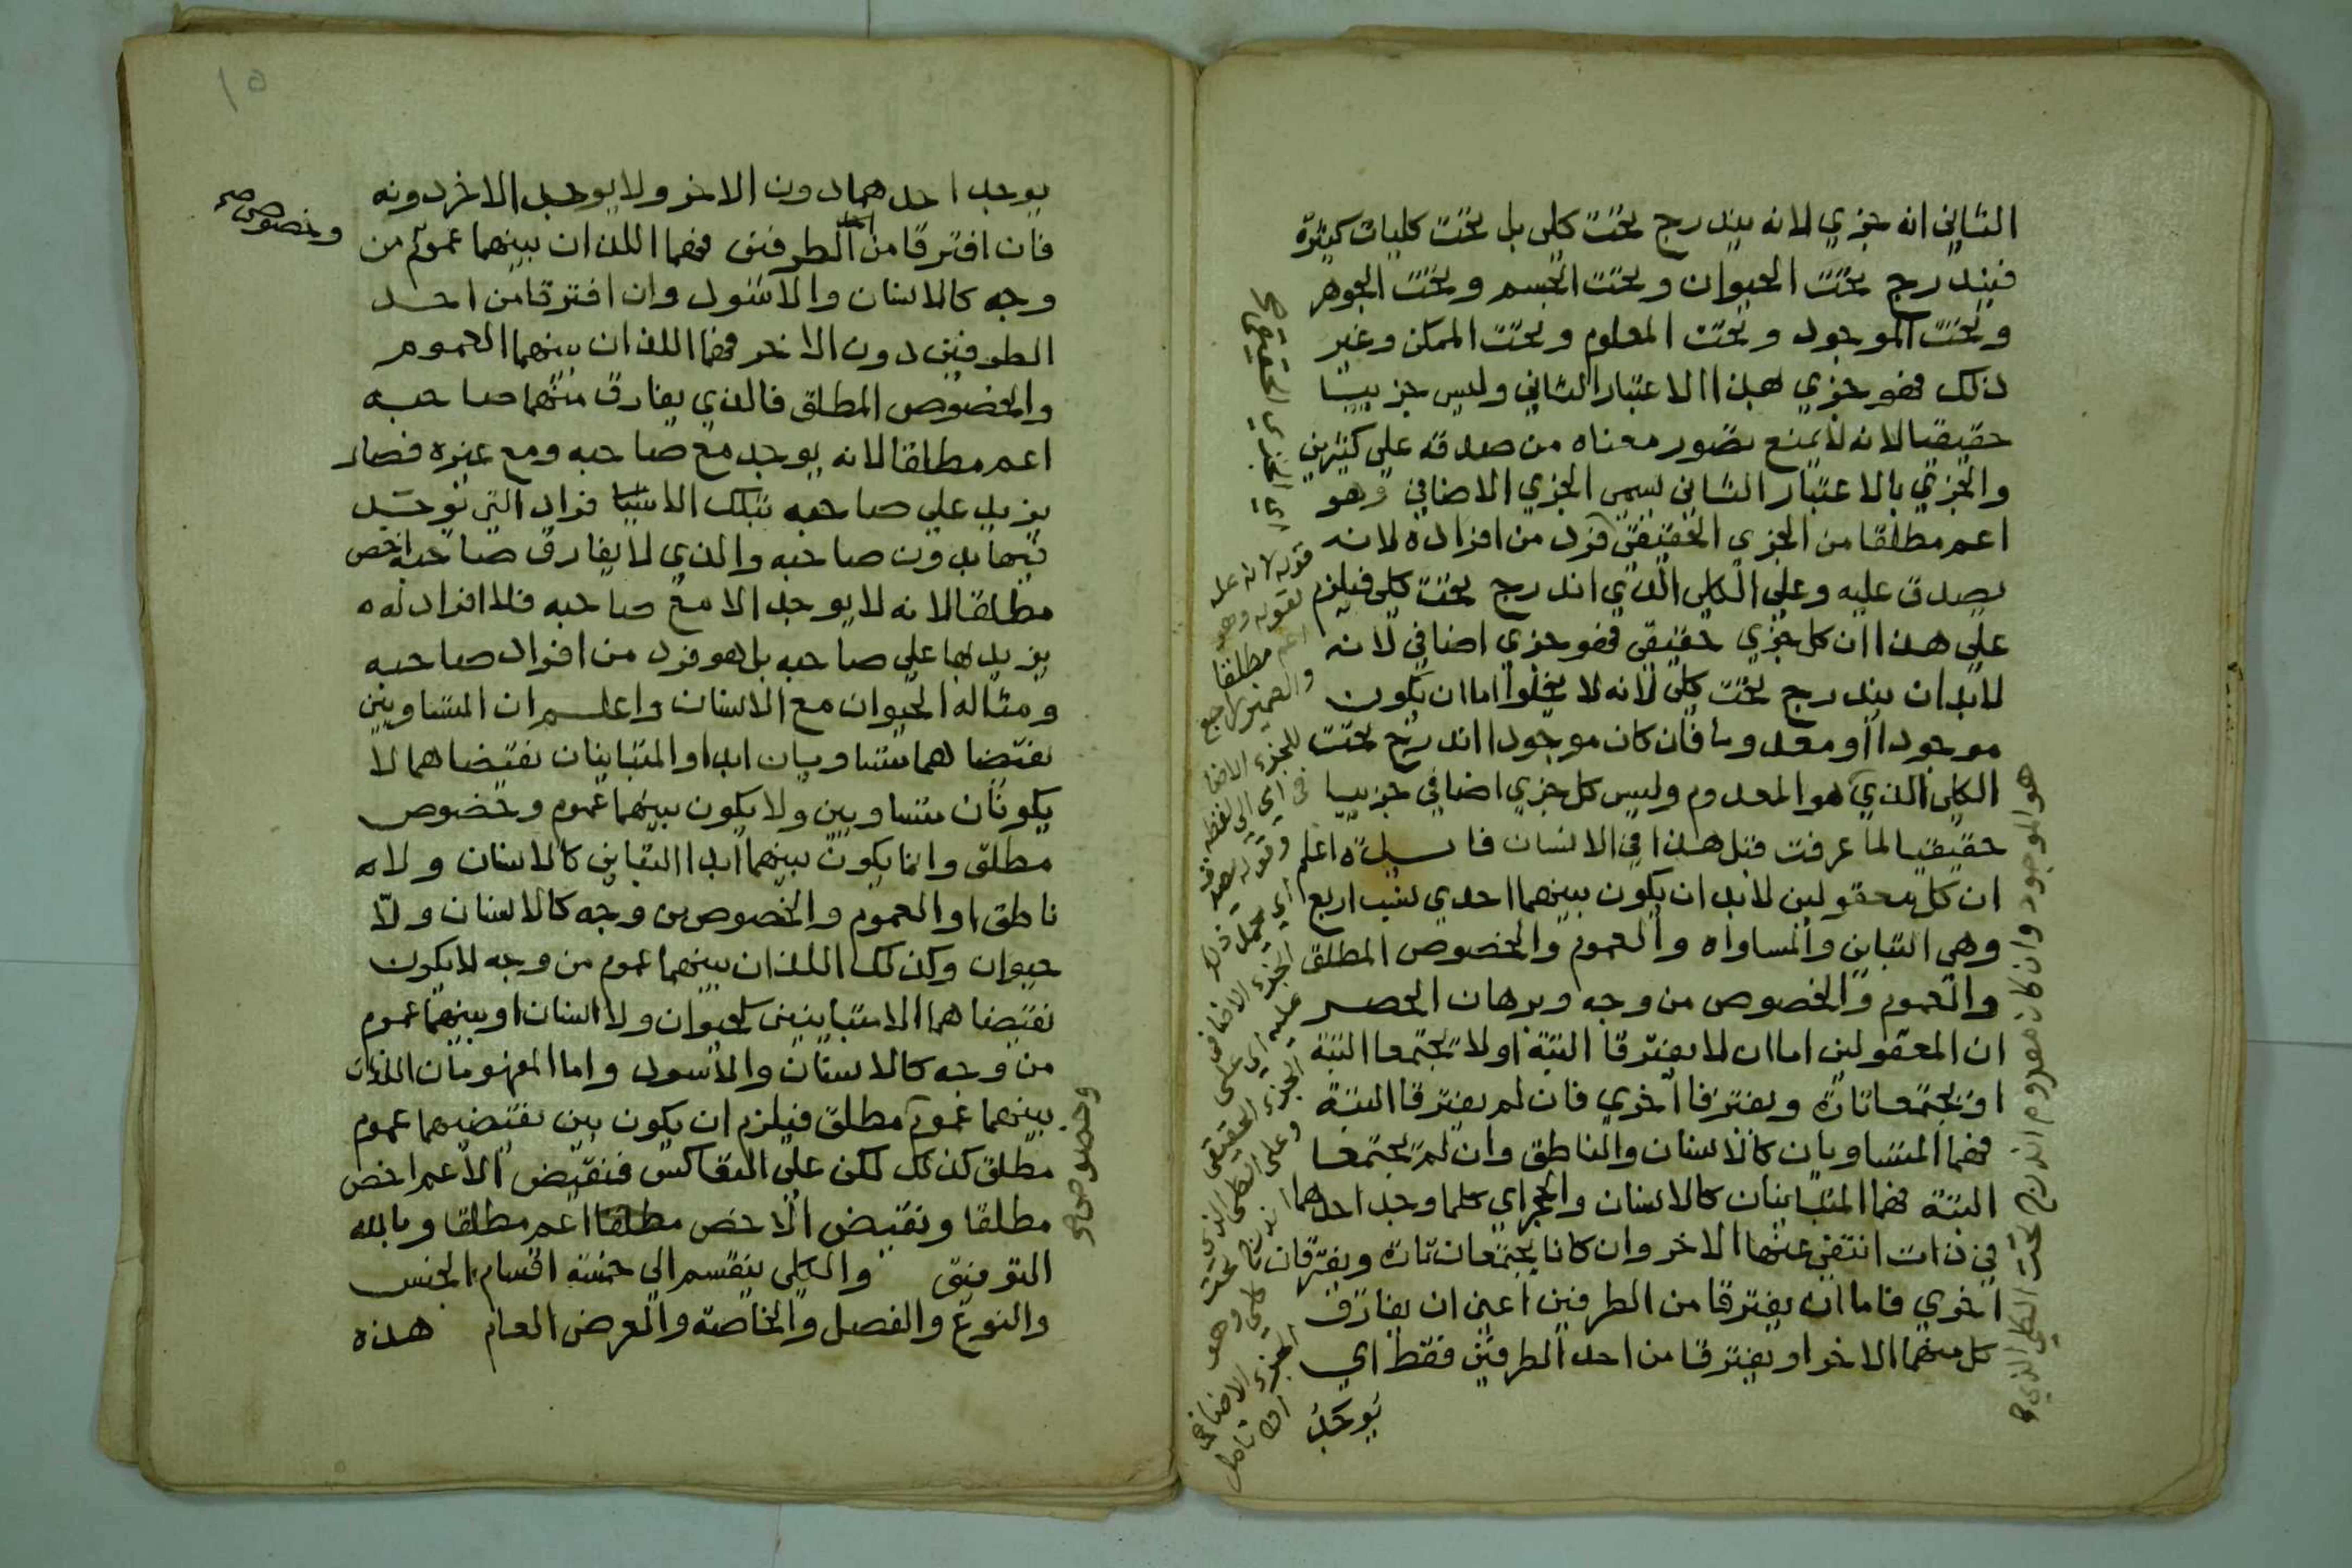 الثاني انه جزي لانه يندرج تحت كلي بل تحت كليات كثيرة
فيندرج تحت الحيوان وتحت الجسم وتحت الجوهر
وتحت الموجود وتحت المعلوم وتحت الممكن وغير
ذلك فهو جزي بهذا الاعتبار الثاني وليس جزييا
حقيقيا لانه لا يمنع تصور معناه من صدقه على كثيرين
والجزي بالاعتبار الثاني يسمى الجزي الاضافي وهو
اعم مطلقا من الجزي الحقيقي فرد من افراده لانه
يصدق عليه وعلى الكلي الذي اندرج تحت كلي فيلزم
على هذا ان كل جزي حقيقي فهو جزي اضافي لانه
لابد ان يندرج تحت كلي لانه لا يخلوا اما ان يكون
موجودا أو معدوما فان كان موجودا اندرج تحت
الكلي الذي هو المعدوم وليس كل جزي اضافي جزييا
حقيقيا لما عرفت قبل هذا في الانسان فايدة اعلم
ان كل معقولين لابد ان يكون بينهما احدي نسب اربع
وهي التباين والمساواه والعموم والخصوص المطلق
والعموم والخصوص من وجه وبرهان الحصر
ان المعقولين اما ان لا يفترقا البتة أو لا يجتمعا البتة
او يجتمعا تارة ويفترقا اخري فان لم يفترقا البتة
فهما المتساويان كالانسان والناطق وان لم يجتمعا
البتة فهما المتباينان كالانسان والحجر اي كلما وجد احدهما
في ذات انتفى عنها الاخر وان كانا يجتمعان تارة ويفترقان
اخري فاما ان يفترقا من الطرفين اعني ان يفارق
كل منهما الاخر او يفترقا من احد الطرفين فقط اي
يوجد
اي الجزي الحقيقي صح
قوله لانه علة
لقوله وهو
اعم مطلقا
والضمير راجع
للجزء الاضا
في اي الى لفظه
وقوله يصدق
اي يحمل
الجزء الاضافي
عليه اي على
الجزء الحقيقي
وعلى الكلي الذي
اندرج تحت
كلي وهو
الجزء الاضافي
تامل
هو الموجود وان كان معدوم اندرج تحت الكلي الذي
يوجد احدهما دون الاخر ولا يوجد الاخر دونه
فان افترقا من الطرفين فهما اللذان بينهما عموم من
وخصوص صح
وجه كالانسان والاسود وان افترقا من احد
الطرفين دون الاخر فهما اللذان بينهما العموم
والخصوص المطلق فالذي يفارق منهما صاحبه
اعم مطلقا لانه يوجد مع صاحبه ومع غيره فصار
يزيد على صاحبه بتلك الافراد التي توجد
فيها بدون صاحبه والذي لا يفارق صاحبه اخص
مطلقا لانه لا يوجد الا مع صاحبه فلا افراد له
يزيد بها على صاحبه بل هو فرد من افراد صاحبه
ومثاله الحيوان مع الانسان واعلم ان المتساويين
نقيضاهما متساويان ابدا والمتباينان نقيضاهما لا
يكونان متساويين ولا يكون بينهما عموم وخصوص
مطلق وانما يكون بينهما ابدا التباين كالانسان ولا
ناطق او العموم والخصوص من وجه كالانسان ولا
حيوان وكذلك اللذان بينهما عموم من وجه لا يكون
نقيضاهما الا متباينين كحيوان ولا انسان او بينهما عموم
من وجه كالانسان والاسود واما المفهومان اللذان
بينهما عموم مطلق فيلزم ان يكون بين نقيضيهما عموم
وخصوص صح
مطلق كذلك لكن على التعاكس فنقيض الاعم اخص
مطلقا ونقيض الاخص مطلقا اعم مطلقا وبالله
التوفيق والكلي ينقسم الى خمسة اقسام الجنس
والنوع والفصل والخاصة والعرض العام هذه
١٥